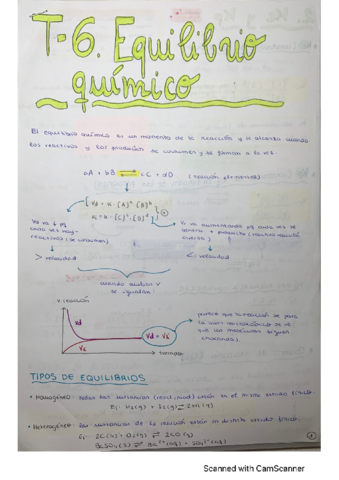 T-6. Equilibrio
químico
El equilibrio químico es un momento de la reacción y se alcanza cuando
los reactivos y los productos se consumen y se forman a la vez
aA + bB ⇌ cC + dD (reacción elemental)
Vd = k · [A]ª · [B]ᵇ
Vi = k · [C]ᶜ · [D]ᵈ
Vd va ↓ pq
cada vez hay
reactivos (se consumen)
> velocidad
Vi va aumentando pq cada vez se
productos
inversa)
< velocidad
cuando ambas V
se igualan:
V reacción
Vd
Vi
Vd = Vi
tiempo
parece que la reacción se para
las moléculas siguen
chocando)
TIPOS DE EQUILIBRIOS
• Homogéneo: todas las sustancias (react, prod) están en el mismo estado físico.
Ej: H₂(g) + I₂(g) ⇌ 2HI(g)
• Heterogéneo: las sustancias de la reacción están en distinto estado físico.
Ej: 2C(s) + O₂(g) ⇌ 2CO(g)
BaSO₄(s) ⇌ Ba²⁺(aq) + SO₄²⁻(aq)
1
Scanned with CamScanner